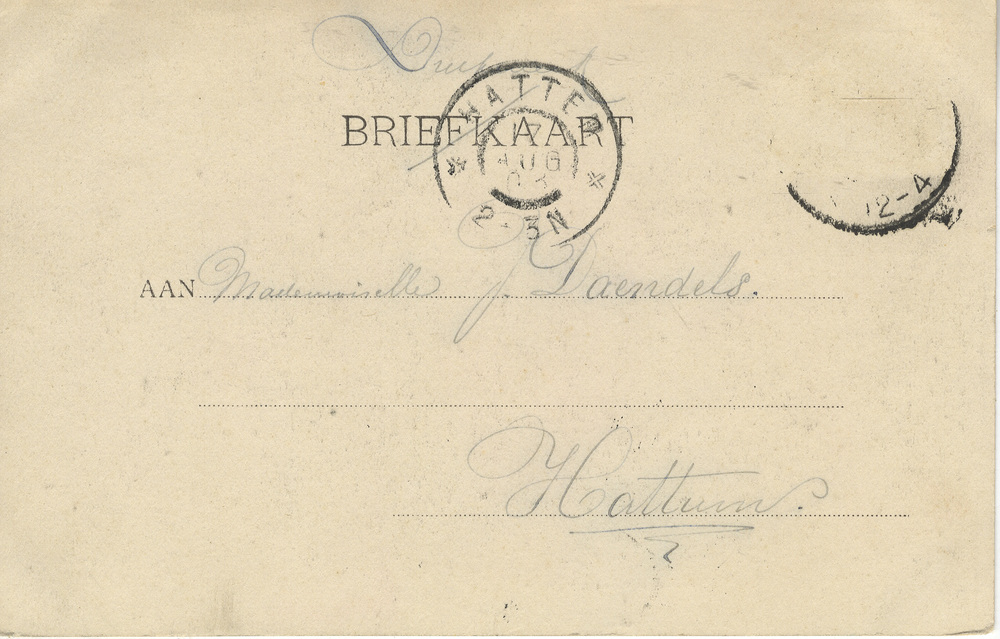 Drukwerk
BRIEFKAART
HATTEM
17
AUG
03
2-3N
12-4
AAN Mademoiselle J. Daendels.
Hattum.